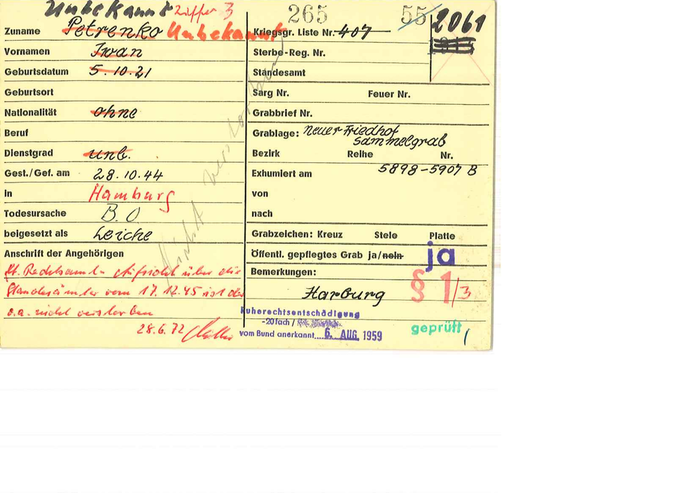 Unbekannt Ziffer 3
265 55 2061
Zuname Petrenko Unbekannt
Kriegsgr. Liste Nr. 407
Vornamen Iwan
Sterbe-Reg. Nr.
Geburtsdatum 5.10.21
Standesamt
Geburtsort
Sarg Nr. Feuer Nr.
Nationalität ohne
Grabbrief Nr.
Beruf
Grablage: neuer Friedhof
Sammelgrab
Dienstgrad unb.
Bezirk Reihe Nr.
5898-5907 B
Gest./Gef. am 28.10.44
Exhumiert am
in Hamburg
von
Todesursache B.O
nach
beigesetzt als Leiche
Grabzeichen: Kreuz Stele Platte
Anschrift der Angehörigen
Öffentl. gepflegtes Grab ja/nein ja
Bemerkungen: § 1/3
Harburg
lt. Rechtsamt - Aufsicht über die
Standesämter vom 17.12.45 ist der
o.a. nicht verstorben
28.6.72
Nicht verstorben
Ruherechtsentschädigung
-20fach/
vom Bund anerkannt 6. AUG. 1959
geprüft